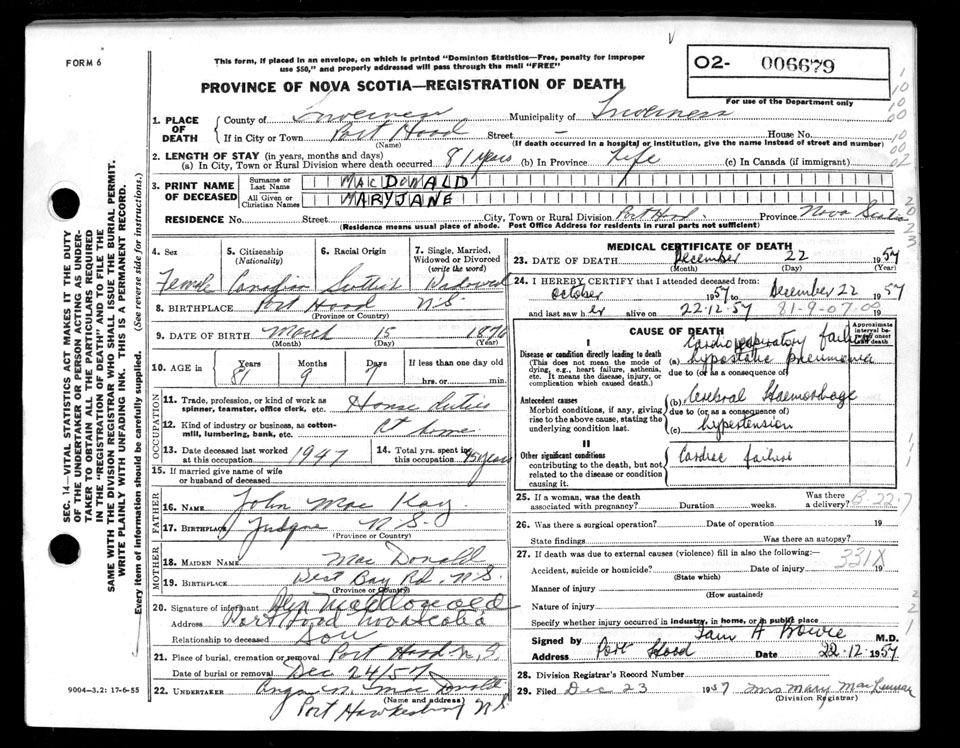 FORM 6
This form, if placed in an envelope, on which is printed "Dominion Statistics—Free, penalty for improper
use $50," and properly addressed will pass through the mail "FREE"
O2- 006679
For use of the Department only
PROVINCE OF NOVA SCOTIA—REGISTRATION OF DEATH
1. PLACE OF DEATH
County of Inverness Municipality of Inverness
If in City or Town Port Hood Street — House No.
(Name) (If death occurred in a hospital or institution, give the name instead of street and number)
2. LENGTH OF STAY (in years, months and days)
(a) In City, Town or Rural Division where death occurred 81 years (b) In Province Life (c) In Canada (if immigrant)
3. PRINT NAME OF DECEASED
Surname or Last Name MACDONALD
All Given or Christian Names MARY JANE
RESIDENCE No. Street City, Town or Rural Division Port Hood. Province Nova Scotia
(Residence means usual place of abode. Post Office Address for residents in rural parts not sufficient)
4. Sex 5. Citizenship (Nationality) 6. Racial Origin 7. Single, Married, Widowed or Divorced (write the word)
Female Canadian Scottish Widowed
8. BIRTHPLACE Port Hood N.S.
(Province or Country)
9. DATE OF BIRTH March 15 1876
(Month) (Day) (Year)
10. AGE in Years Months Days If less than one day old
81 9 7 hrs. or min.
OCCUPATION
11. Trade, profession, or kind of work as spinner, teamster, office clerk, etc. House Duties
12. Kind of industry or business, as cotton-mill, lumbering, bank, etc. At home.
13. Date deceased last worked at this occupation 1947 14. Total yrs. spent in this occupation 45 years
15. If married give name of wife or husband of deceased
FATHER
16. Name John Mac Kay
17. Birthplace Judique N.S.
(Province or Country)
MOTHER
18. Maiden Name Mac Donald
19. Birthplace West Bay Rd. N.S.
(Province or Country)
20. Signature of informant MacDonald
Address Port Hood Nova Scotia
Relationship to deceased Son
21. Place of burial, cremation or removal Port Hood N.S.
Date of burial or removal Dec 24/57
22. UNDERTAKER Mac Donald
(Name and address)
Port Hawkesbury N S
9004-3.2: 17-6-55
MEDICAL CERTIFICATE OF DEATH
23. DATE OF DEATH December 22 1957
(Month) (Day) (Year)
24. I HEREBY CERTIFY that I attended deceased from:
October 1957 to December 22 1957
and last saw her alive on 22-12-57 19
81-9-07.00
CAUSE OF DEATH
Approximate interval between onset and death
I
Cardiorespiratory failure
Disease or condition directly leading to death (a) hypostatic pneumonia
(This does not mean the mode of dying, e.g., heart failure, asthenia, etc. It means the disease, injury, or complication which caused death.)
due to (or as a consequence of)
Antecedent causes (b) Cerebral Haemorrhage
Morbid conditions, if any, giving rise to the above cause, stating the underlying condition last.
due to (or as a consequence of)
(c) hypertension
II
Other significant conditions Cardiac failure
contributing to the death, but not related to the disease or condition causing it.
25. If a woman, was the death associated with pregnancy? Duration weeks. Was there a delivery? B-22-7
26. Was there a surgical operation? Date of operation 19
State findings Was there an autopsy?
27. If death was due to external causes (violence) fill in also the following:— 331X
Accident, suicide or homicide? Date of injury 19
(State which)
Manner of injury
(How sustained)
Nature of injury
Specify whether injury occurred in industry, in home, or in public place
Signed by Iain A Bowie M.D.
Address Port Hood Date 22-12-1957
28. Division Registrar's Record Number
29. Filed Dec 23 1957 Mrs Mary MacLennan
(Division Registrar)
SEC. 14—VITAL STATISTICS ACT MAKES IT THE DUTY
OF THE UNDERTAKER OR PERSON ACTING AS UNDER-
TAKER TO OBTAIN ALL THE PARTICULARS REQUIRED
IN THE "REGISTRATION OF DEATH" AND TO FILE THE
SAME WITH THE DIVISION REGISTRAR WHO SHALL ISSUE THE BURIAL PERMIT.
WRITE PLAINLY WITH UNFADING INK. THIS IS A PERMANENT RECORD.
Every item of information should be carefully supplied. (See reverse side for instructions.)